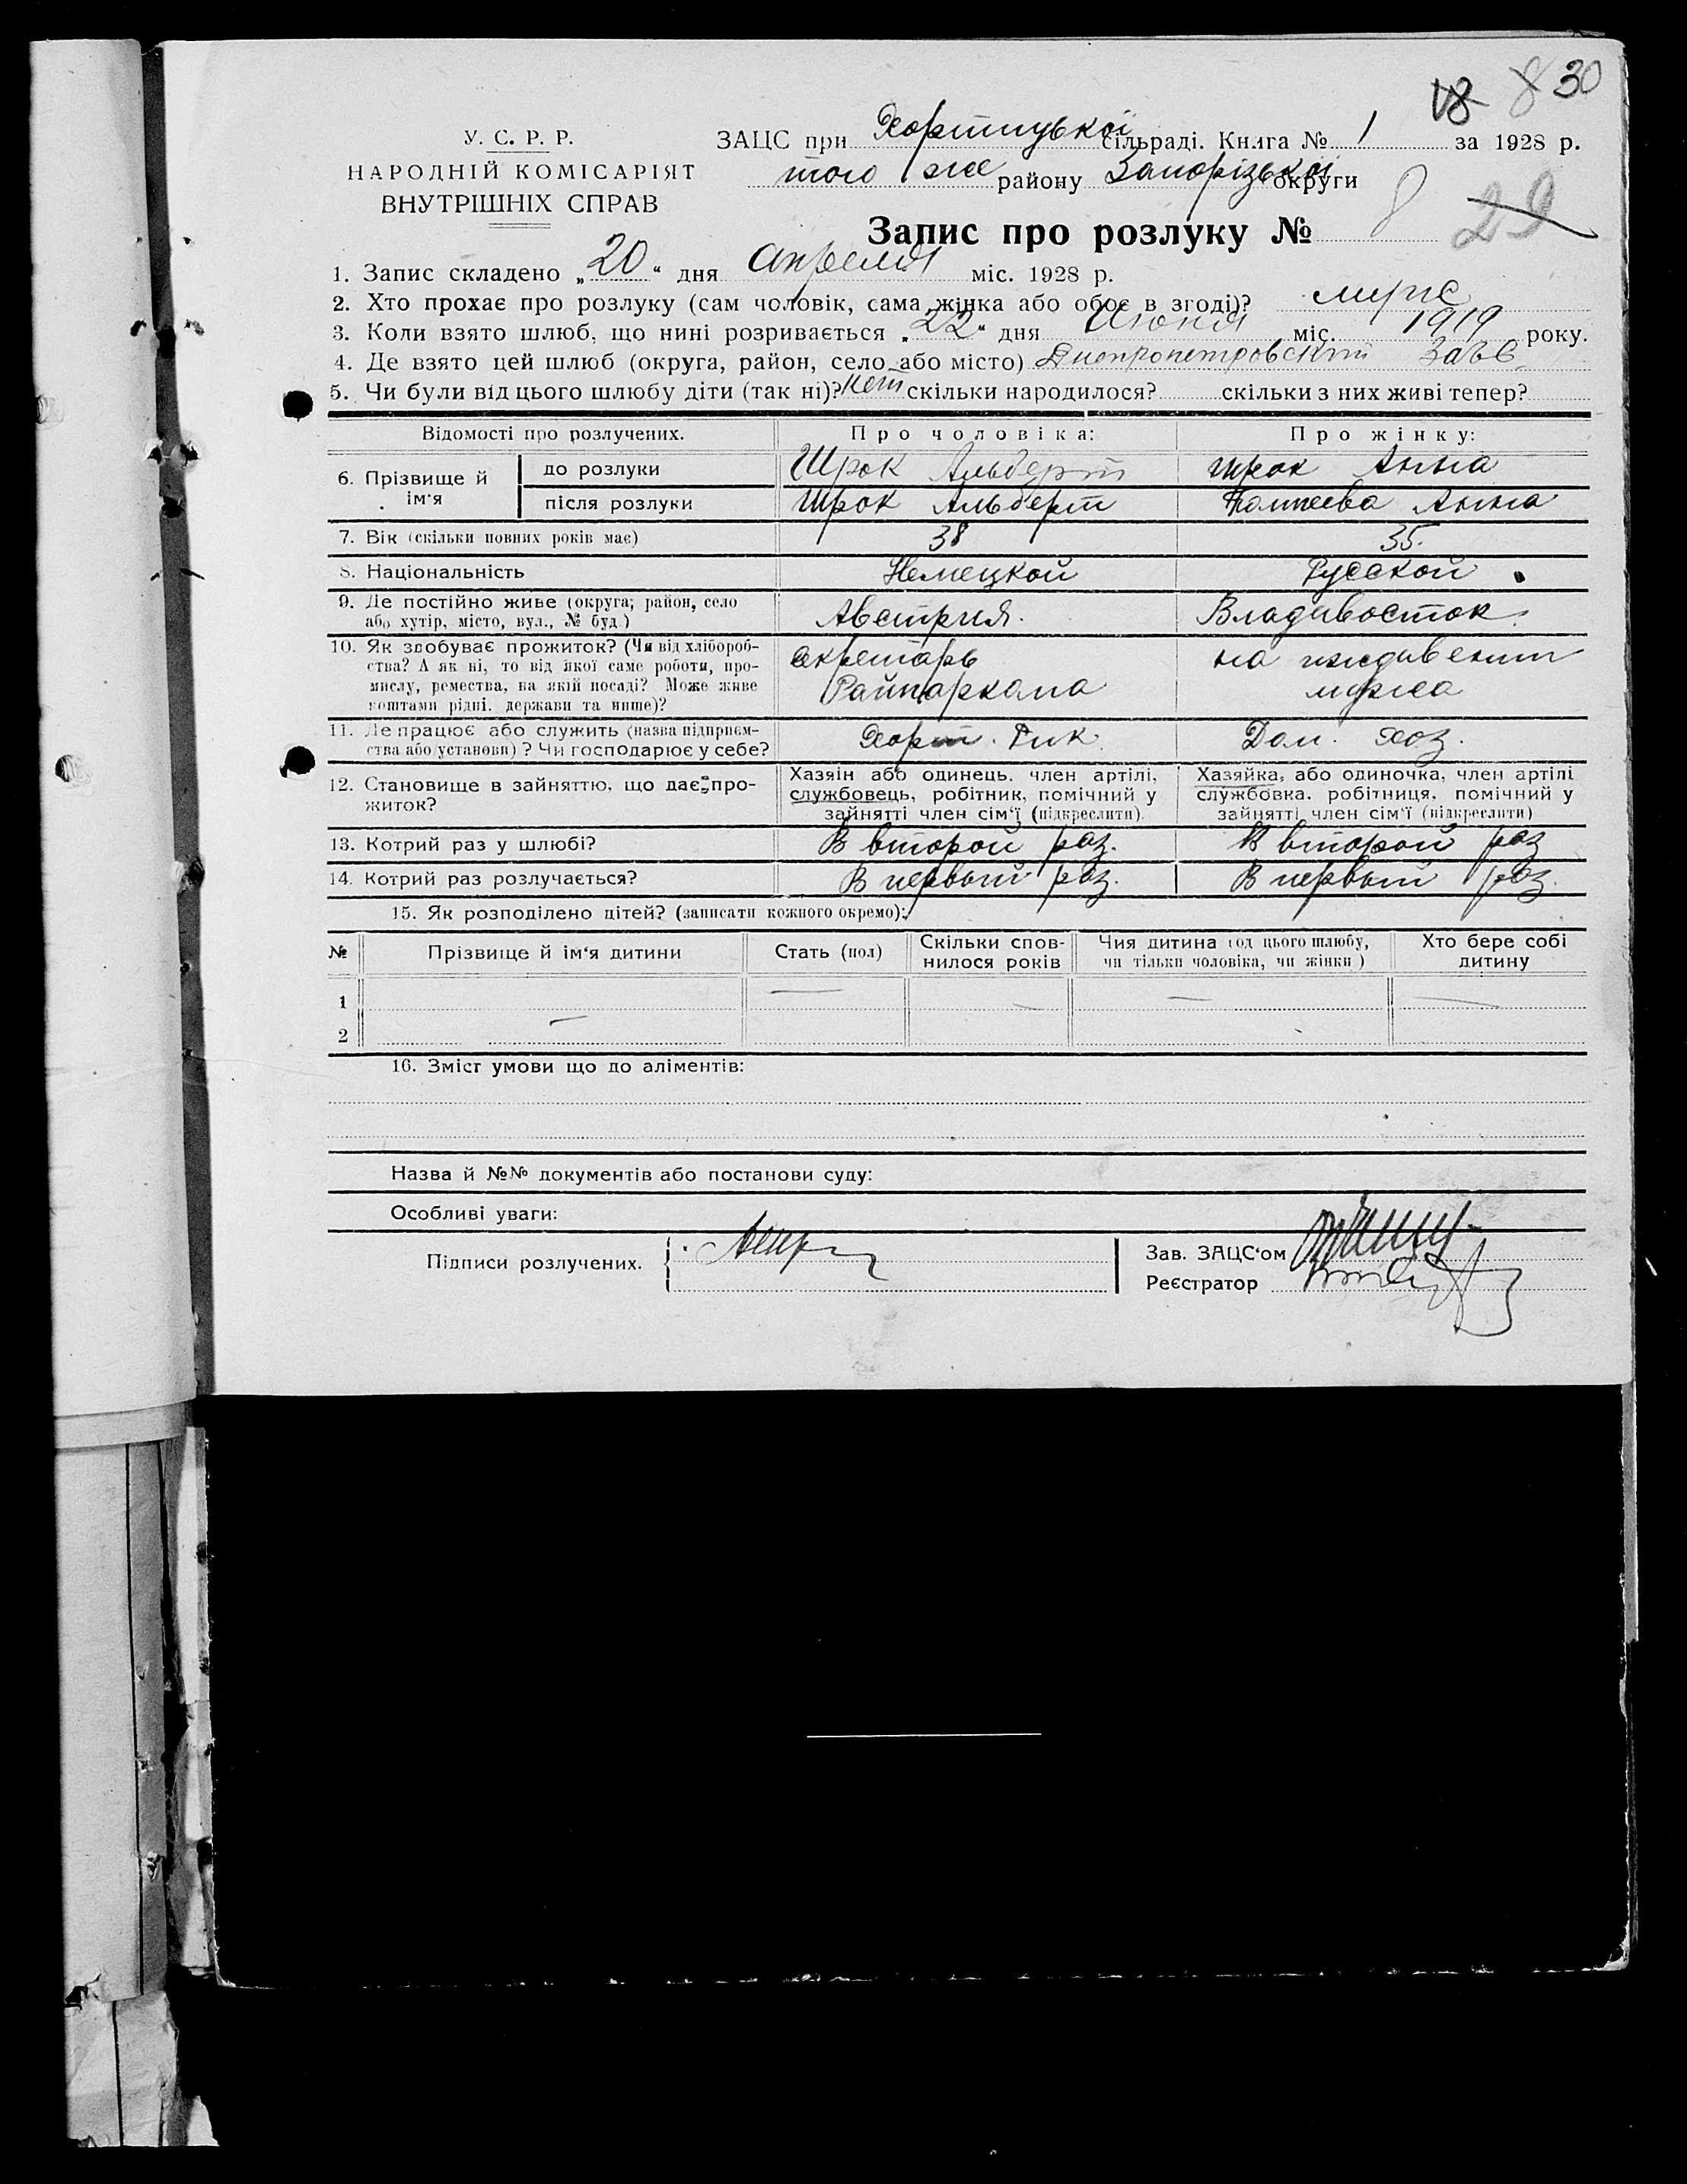 18 8 30
У. С. Р. Р.
НАРОДНІЙ КОМІСАРІЯТ
ВНУТРІШНІХ СПРАВ
ЗАЦС при Хортицької сільраді. Книга № 1 за 1928 р.
того же району Запорізької округи
Запис про розлуку № 8 29
1. Запис складено „20“ дня Апреля міс. 1928 р.
2. Хто прохає про розлуку (сам чоловік, сама жінка або обоє в згоді)? муже
3. Коли взято шлюб, що нині розривається „22“ дня Июня міс. 1919 року.
4. Де взято цей шлюб (округа, район, село або місто) Днепропетровский
5. Чи були від цього шлюбу діти (так ні)? нет скільки народилося? скільки з них живі тепер?
Відомості про розлучених. Про чоловіка: Про жінку:
6. Прізвище й ім'я
до розлуки Шрок Альберт Шрок Анна
після розлуки Шрок Альберт Анна
7. Вік (скільки повних років має) 38 35.
8. Національність Немецкой Русской
9. Де постійно живе (округа; район, село
або хутір, місто, вул., № буд) Австрия. Владивосток.
10. Як здобуває прожиток? (Чи від хлібороб-
ства? А як ні, то від якої саме роботи, про-
мислу, ремества, на якій посаді? Може живе
коштами рідні, держави та инше)?
Секретарь
Райпаркома
на иждивении
мужа
11. Де працює або служить (назва підприєм-
ства або установи)? Чи господарює у себе?
Хорт. Рик. Дом. хоз.
12. Становище в зайняттю, що дає про-
житок?
Хазяін або одинець, член артілі,
службовець, робітник, помічний у
зайнятті член сім'ї (підкреслити).
Хазяйка, або одиночка, член артілі
службовка, робітниця, помічний у
зайнятті член сім'ї (підкреслити)
13. Котрий раз у шлюбі? В второй раз. В второй раз
14. Котрий раз розлучається? В первый раз. В первый раз.
15. Як розподілено дітей? (записати кожного окремо):
№ Прізвище й ім'я дитини Стать (пол) Скільки спов-
нилося років Чия дитина (од цього шлюбу,
чи тільки чоловіка, чи жінки) Хто бере собі
дитину
1
2
16. Зміст умови що до аліментів:
Назва й №№ документів або постанови суду:
Особливі уваги:
Підписи розлучених.
Зав. ЗАЦС'ом
Реєстратор